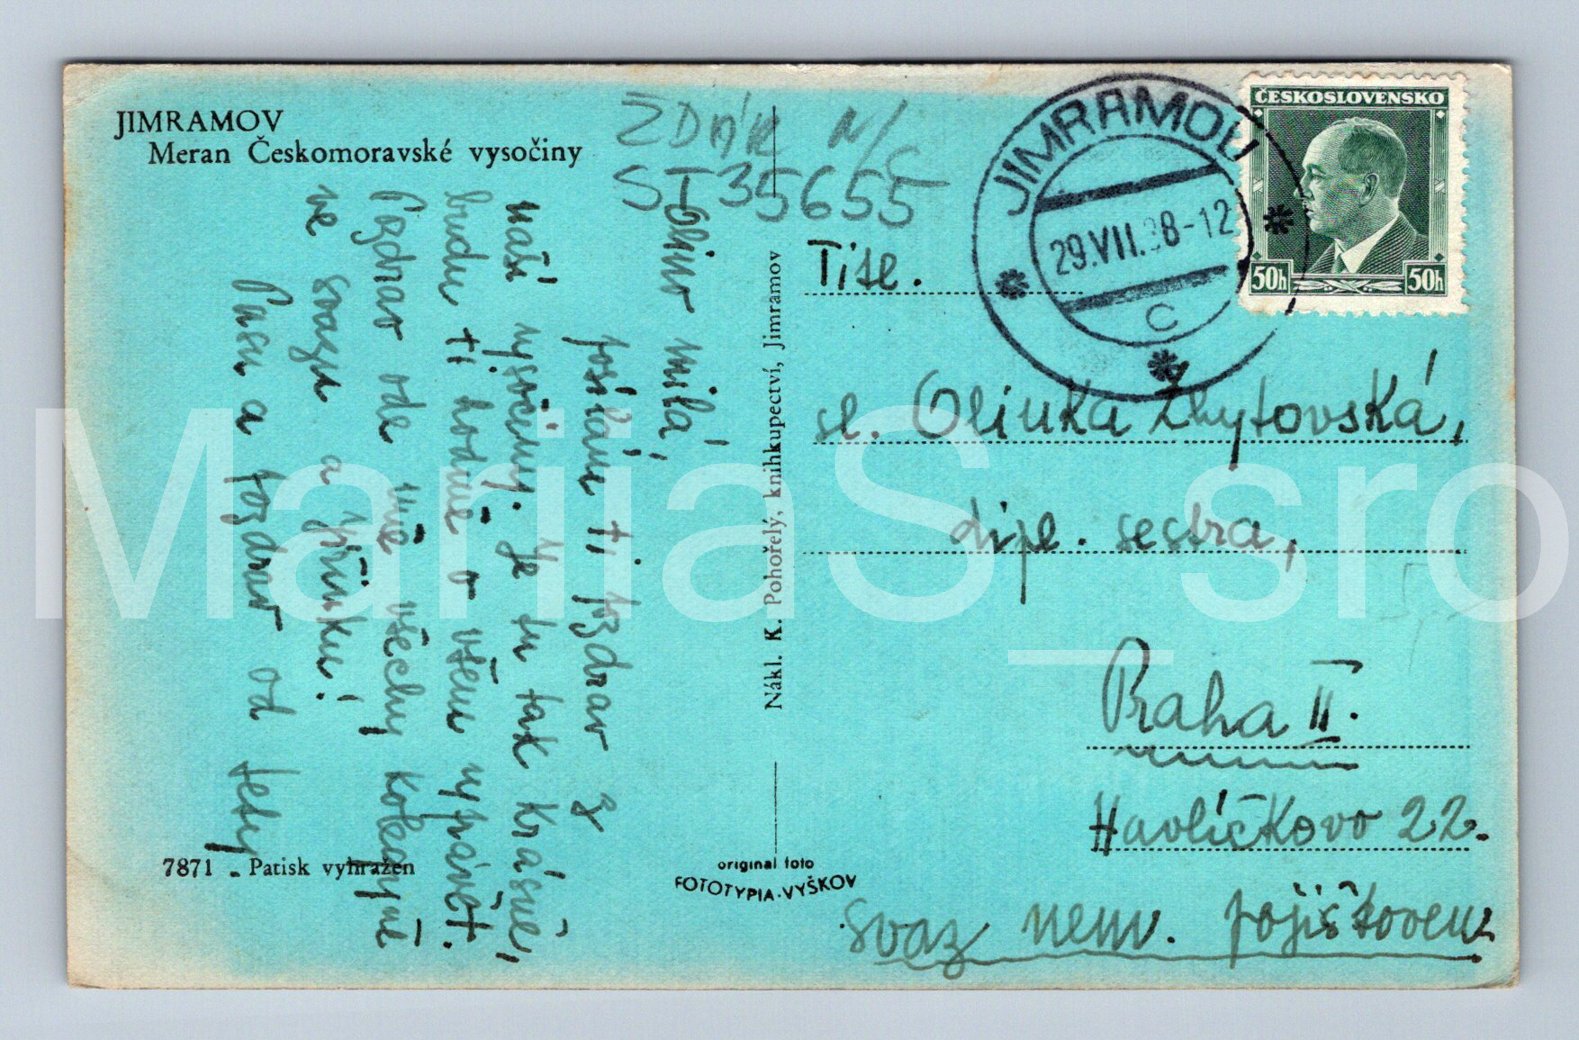 JIMRAMOV
Meran Českomoravské vysočiny
ZDÁR N/C
ST 35655
JIMRAMOV
29.VII.38-12
C
ČESKOSLOVENSKO
50h 50h
Olino milá,
posílám ti pozdrav z
naší vysočiny. Je tu tak krásně,
budu ti hodně o všem vyprávět.
Pozdrav ode mě všechny kolegyně
ve svazu a Jřinku!
Pusu a pozdrav od tety
Tit.
sl. Olinka Chytovská,
dipl. sestra,
Praha II.
Havlíčkovo 22.
svaz nem. pojišťoven
Nákl. K. Pohořelý, knihkupectví, Jimramov
7871 - Patisk vyhražen
original foto
FOTOTYPIA-VYŠKOV
MariiaS_sro